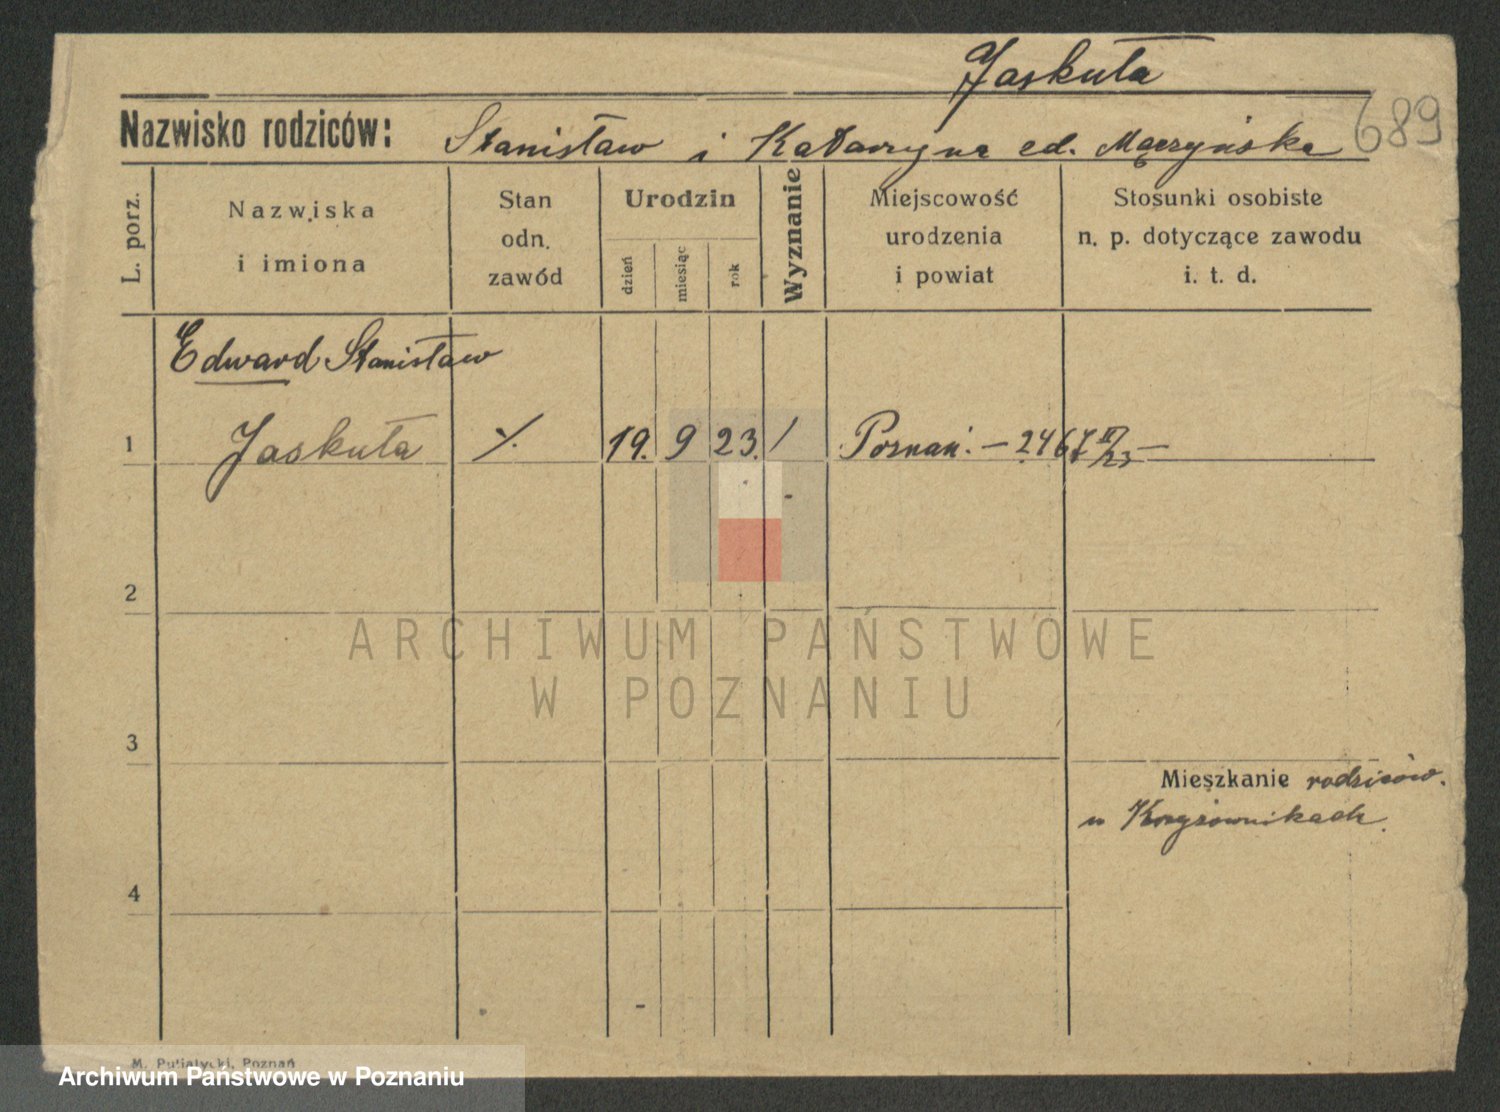 Jaskuła
689
Nazwisko rodziców: Stanisław i Katarzyna cd. Mączyńska
L. porz.
Nazwiska
i imiona
Stan
odn.
zawód
Urodzin
dzień
miesiąc
rok
Wyznanie
Miejscowość
urodzenia
i powiat
Stosunki osobiste
n. p. dotyczące zawodu
i. t. d.
Edward Stanisław
1 Jaskuła ·/. 19. 9 23. / Poznań. – 2467 IV/23 –
2
ARCHIWUM PAŃSTWOWE
W POZNANIU
3
Mieszkanie rodziców.
w Krzyżownikach.
4
M. Putiatycki, Poznań
Archiwum Państwowe w Poznaniu